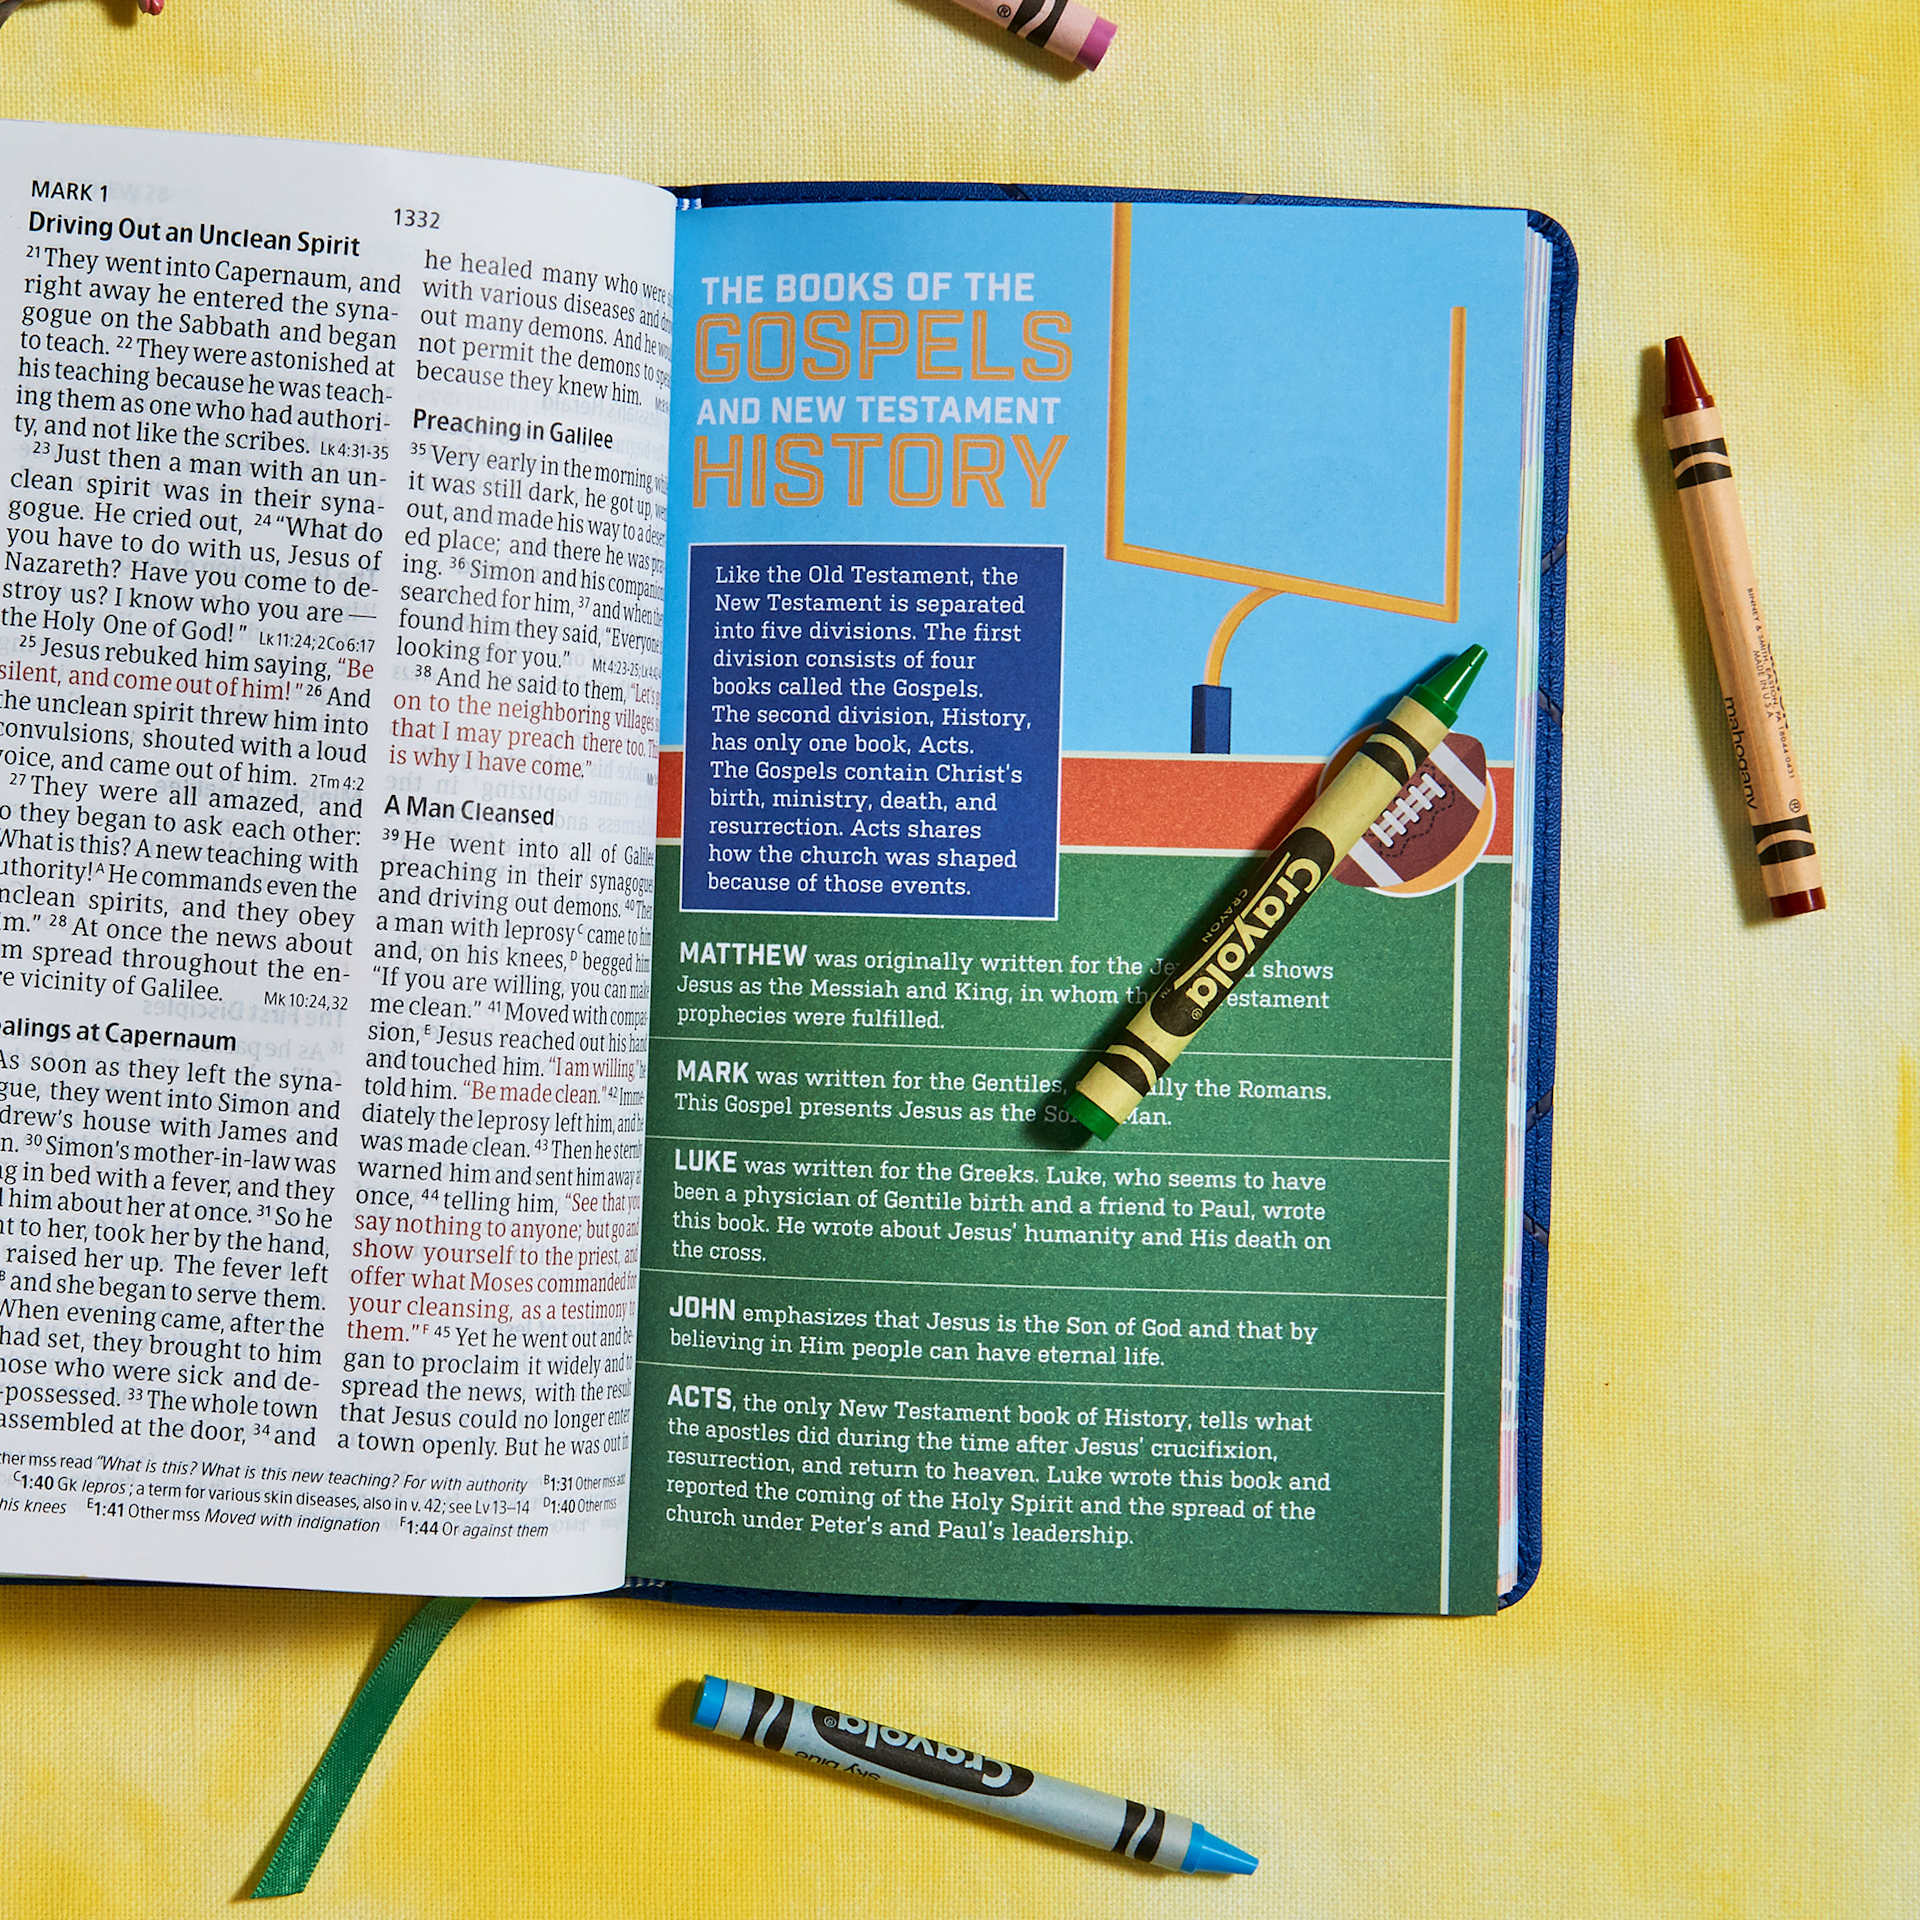 MARK 1
1332
Driving Out an Unclean Spirit
21 They went into Capernaum, and
right away he entered the syna-
gogue on the Sabbath and began
to teach. 22 They were astonished at
his teaching because he was teach-
ing them as one who had authori-
ty, and not like the scribes. Lk 4:31-35
23 Just then a man with an un-
clean spirit was in their syna-
gogue. He cried out, 24 “What do
you have to do with us, Jesus of
Nazareth? Have you come to de-
stroy us? I know who you are —
the Holy One of God!” Lk 11:24; 2Co 6:17
25 Jesus rebuked him saying, “Be
silent, and come out of him!” 26 And
the unclean spirit threw him into
convulsions, shouted with a loud
voice, and came out of him. 2Tm 4:2
27 They were all amazed, and
they began to ask each other:
“What is this? A new teaching with
authority! A He commands even the
unclean spirits, and they obey
him.” 28 At once the news about
spread throughout the en-
vicinity of Galilee. Mk 10:24,32
at Capernaum
As soon as they left the syna-
gogue, they went into Simon and
Andrew’s house with James and
30 Simon’s mother-in-law was
in bed with a fever, and they
him about her at once. 31 So he
to her, took her by the hand,
raised her up. The fever left
B and she began to serve them.
When evening came, after the
had set, they brought to him
those who were sick and de-
-possessed. 33 The whole town
assembled at the door, 34 and
he healed many who were
with various diseases and
out many demons. And he
not permit the demons to
because they knew him.
Preaching in Galilee
35 Very early in the morning,
it was still dark, he got up,
out, and made his way to a
ed place; and there he was
ing. 36 Simon and his
searched for him, 37 and when
found him they said, “Everyone
looking for you.” Mt 4:23-25;
38 And he said to them, “Let’s
on to the neighboring villages
that I may preach there too.
is why I have come.”
A Man Cleansed
39 He went into all of
preaching in their
and driving out demons. 40
a man with leprosy C came to him
and, on his knees, D begged him
“If you are willing, you can make
me clean.” 41 Moved with compas-
sion, E Jesus reached out his hand
and touched him. “I am willing,” he
told him. “Be made clean.” 42 Imme-
diately the leprosy left him, and he
was made clean. 43 Then he sternly
warned him and sent him away at
once, 44 telling him, “See that you
say nothing to anyone; but go and
show yourself to the priest, and
offer what Moses commanded for
your cleansing, as a testimony to
them.” F 45 Yet he went out and be-
gan to proclaim it widely and to
spread the news, with the result
that Jesus could no longer enter
a town openly. But he was out in
mss read “What is this? What is this new teaching? For with authority B1:31 Other mss add
C1:40 Gk lepros; a term for various skin diseases, also in v. 42; see Lv 13–14 D1:40 Other mss
his knees E1:41 Other mss Moved with indignation F1:44 Or against them
THE BOOKS OF THE
GOSPELS
AND NEW TESTAMENT
HISTORY
Like the Old Testament, the
New Testament is separated
into five divisions. The first
division consists of four
books called the Gospels.
The second division, History,
has only one book, Acts.
The Gospels contain Christ’s
birth, ministry, death, and
resurrection. Acts shares
how the church was shaped
because of those events.
MATTHEW was originally written for the shows
Jesus as the Messiah and King, in whom
prophecies were fulfilled.
MARK was written for the Gentiles, the Romans.
This Gospel presents Jesus as the Man.
LUKE was written for the Greeks. Luke, who seems to have
been a physician of Gentile birth and a friend to Paul, wrote
this book. He wrote about Jesus’ humanity and His death on
the cross.
JOHN emphasizes that Jesus is the Son of God and that by
believing in Him people can have eternal life.
ACTS, the only New Testament book of History, tells what
the apostles did during the time after Jesus’ crucifixion,
resurrection, and return to heaven. Luke wrote this book and
reported the coming of the Holy Spirit and the spread of the
church under Peter’s and Paul’s leadership.
Crayola ®
CRAYON
BINNEY & SMITH, EASTON, PA 18044-0431
MADE IN U.S.A.
mahogany ®
Crayola ®
sky blue